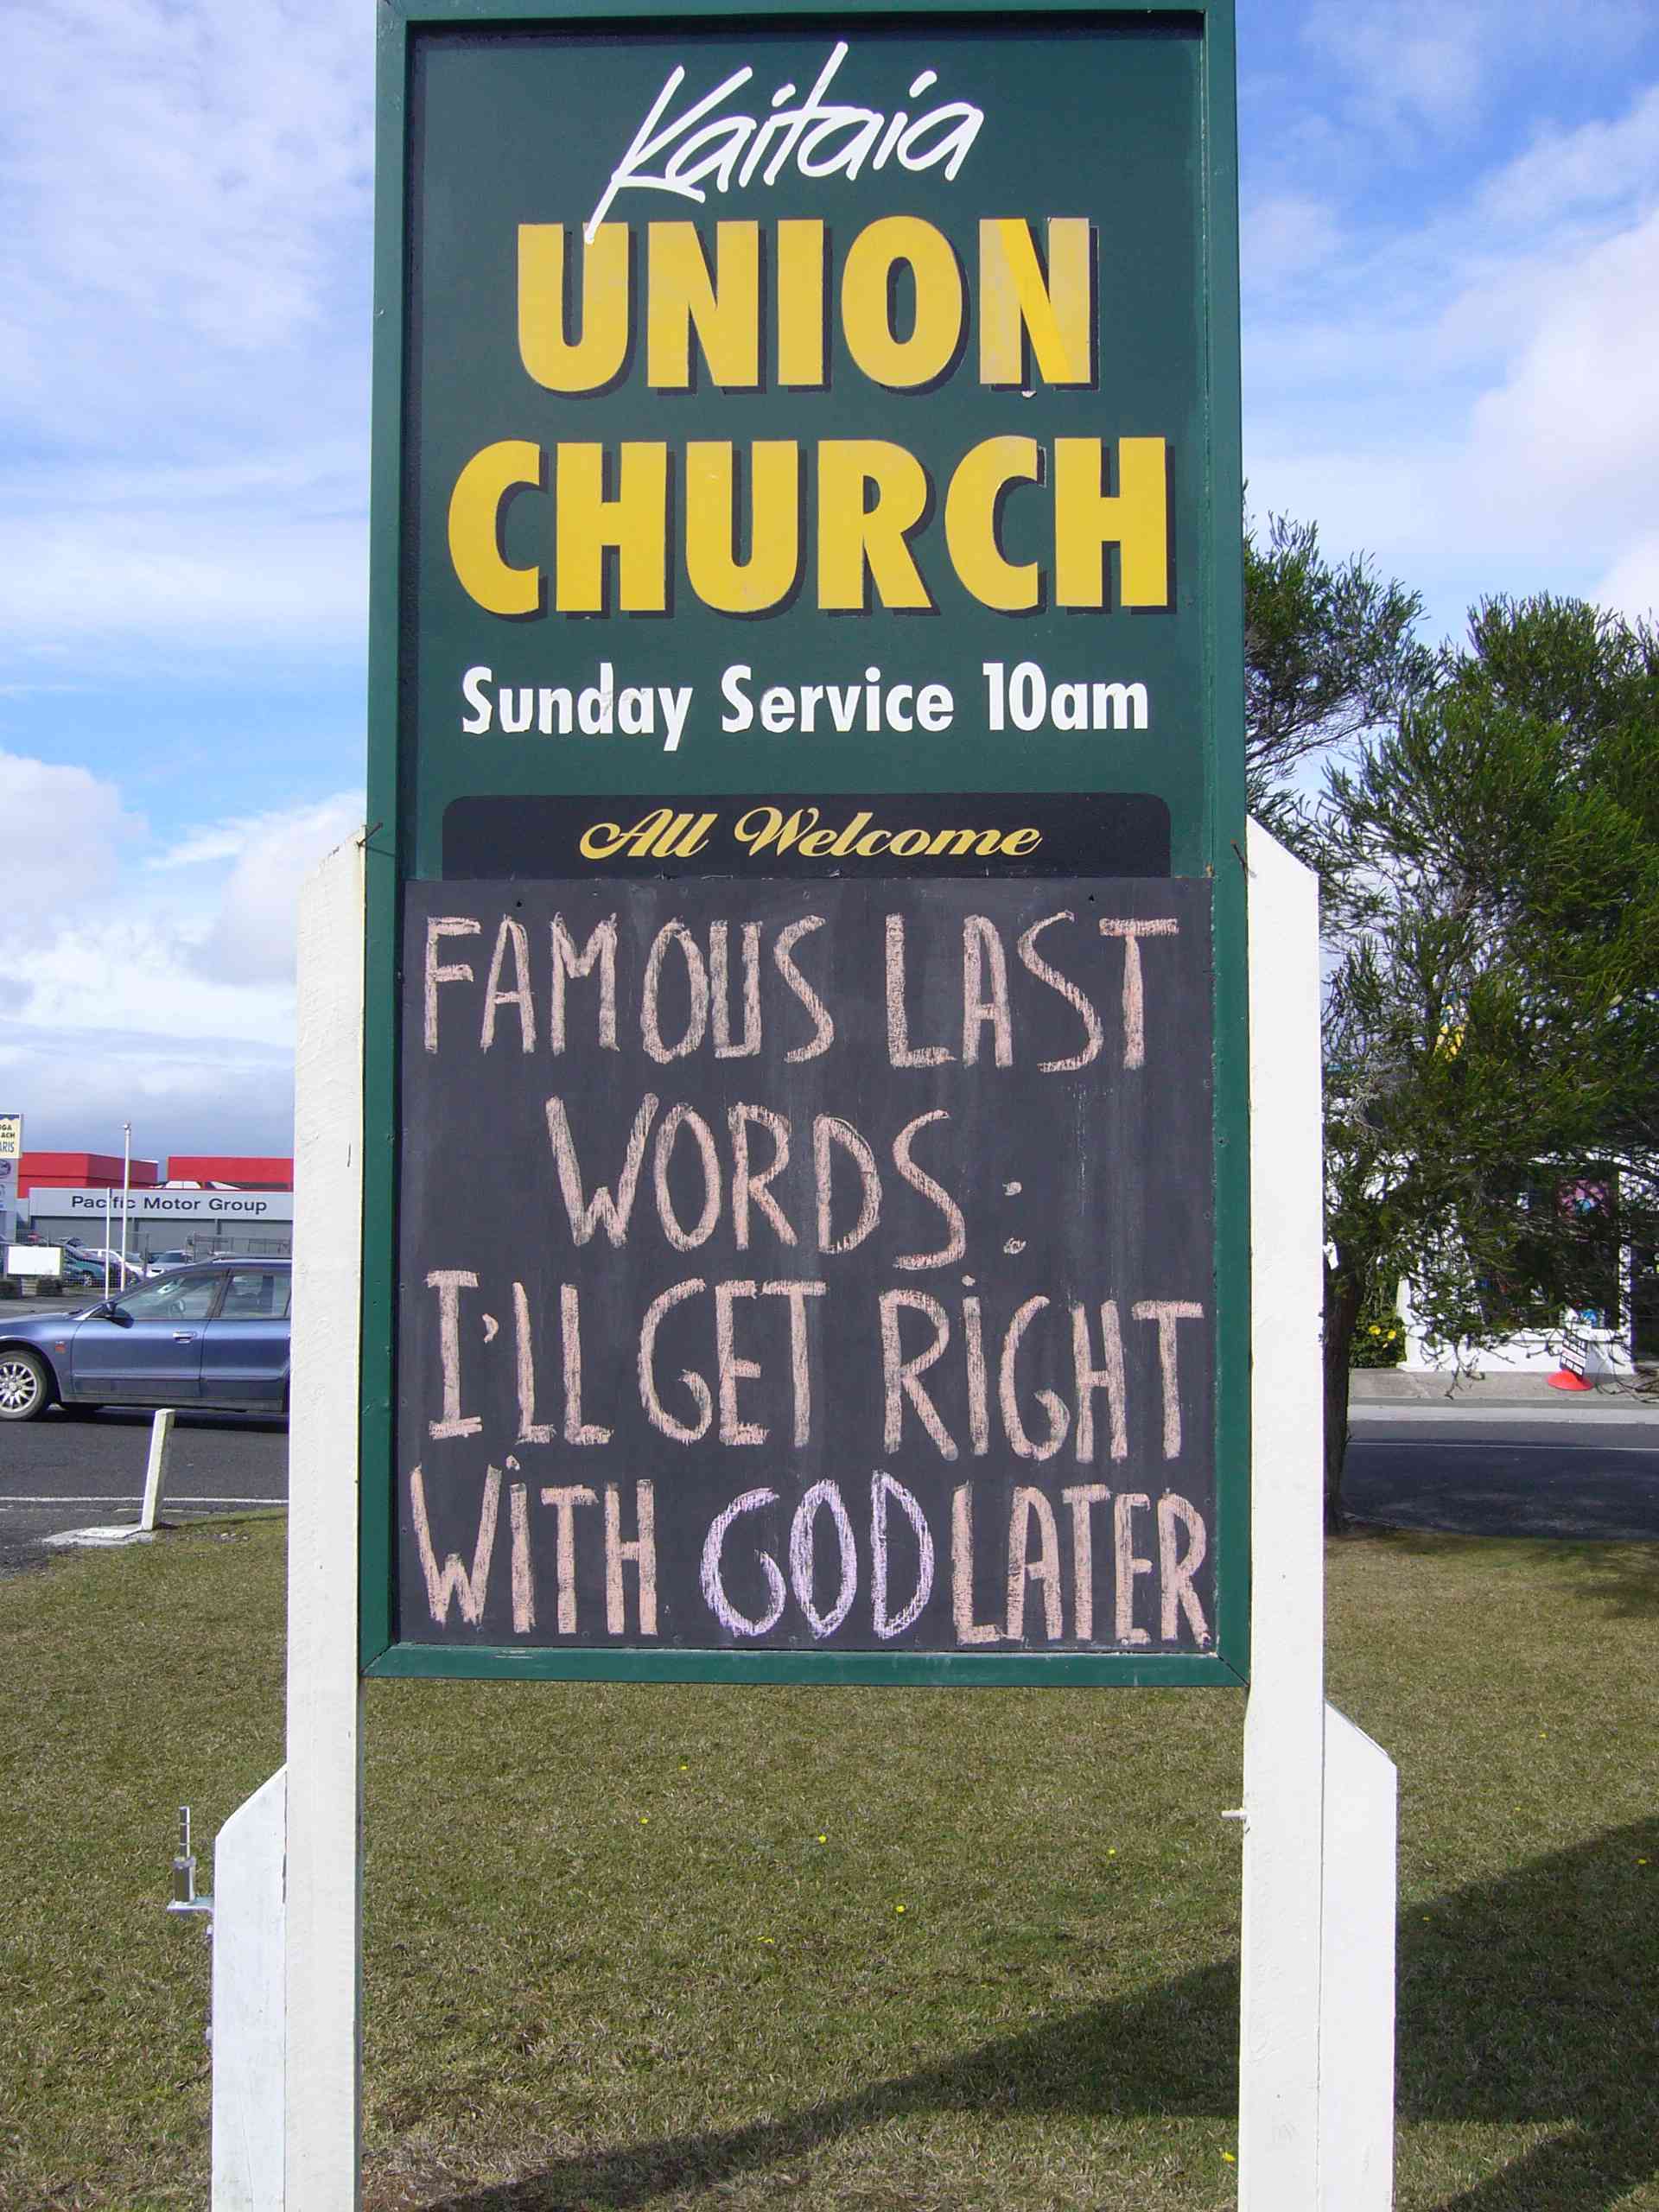 Kaitaia
UNION
CHURCH
Sunday Service 10am
All Welcome
FAMOUS LAST
WORDS:
I'LL GET RiGHT
WiTH GOD LATER
Pacific Motor Group